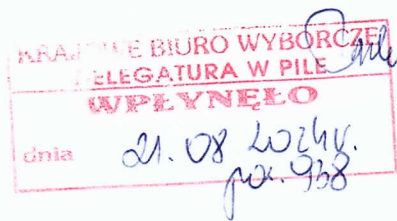 KRAJOWE BIURO WYBORCZE
DELEGATURA W PILE
WPŁYNĘŁO
dnia 21.08 2024r.
poz. 938